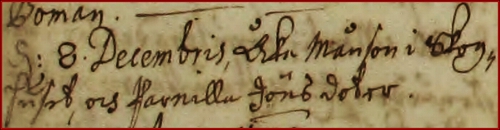 Boman.
D: 8. Decembris, Åke Månson i Skog,
huset, och Parnilla Jöns doter.